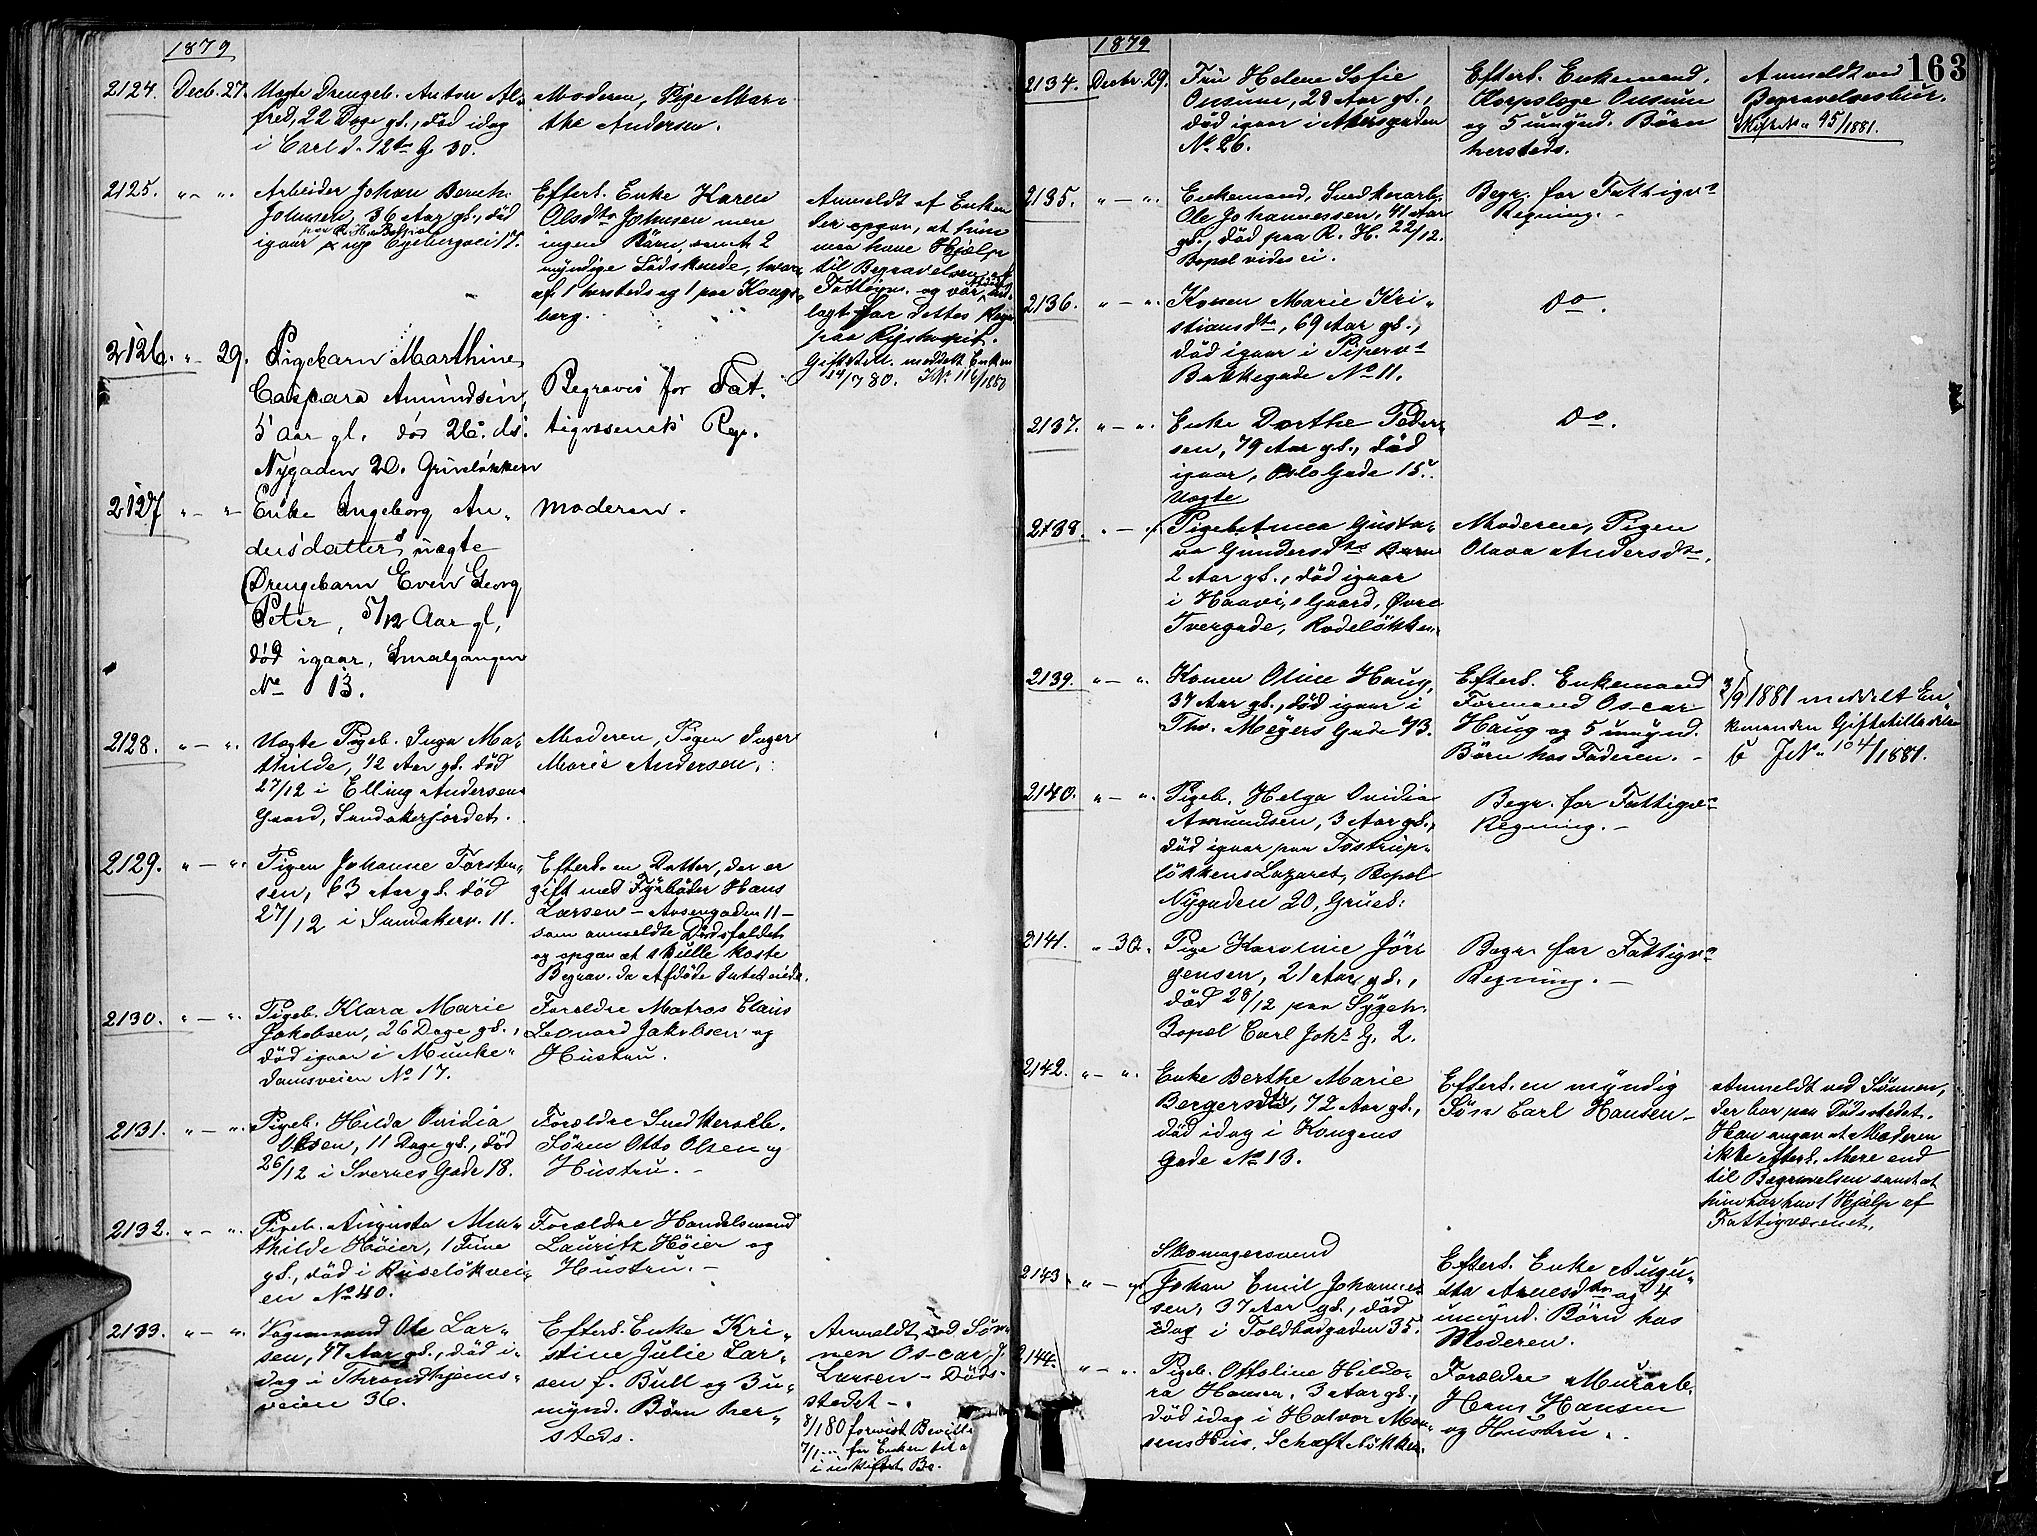 1879
2124. Decb. 27. Uægte Drengeb. Anton Al-
fred, 22 Dage gl., död idag
i Carl d. 12te G. 30.
Moderen, Pige Mar-
the Andersen.
2125. " - " Arbeider Johan Bernh.
Johnsen, 36 Aar gl., död
igaar
Egebergvei 17.
Efterl. Enke Karen
Olsdtr Johnsen men
ingen Börn, samt 2
myndige Södskende, hvor-
af 1 hersteds og 1 paa Kongs-
berg.
Anmeldt af Enken
der opgav, at hun
maa have Hjælp
til Begravelsen af
Fattigv. og var
lagt for dettes Regn
paa Rigshospit.
Giftstill. meddelt Enken
14/7 80. JNo 116/1880
2126. " - 29. Pigebarn Marthine
Caspara Amundsen,
5 Aar gl. död 26. ds.
Nygaden 20. Grünelökken
Begraves for Fat-
tigvæsenets Reg.
2127 " - " Enke Ingeborg An-
dersdatters uægte
Drengebarn Even Georg
Peter, 5/12 Aar gl,
död igaar, Smalgangen
No 13.
Moderen.
2128. " - " Uægte Pigeb. Inga Ma-
thilde, 12 Aar gl. död
27/12 i Elling Andersens
Gaard, Sandakerjordet.
Moderen, Pigen Inger
Marie Andersen.
2129. " - " Pigen Johanne Torsten-
sen, 63 Aar gl. död
27/12 i Sandakerv. 11.
Efterl. en Datter, der er
gift med Fyrböder Hans
Larsen - 11 -
som anmeldte Dödsfaldet
og opgav at skulle koste
Begrav. da Afdöde Intet eiede.
2130. " - " Pigeb. Klara Marie
Jakobsen, 26 Dage gl.,
död igaar i Munke-
damsveien No 17.
Forældre Matros Claus
Leonard Jakobsen og
Hustru.
2131. " - " Pigeb. Hilda Ovidia
Olsen, 11 Dage gl., död
26/12 i Sverres Gade 18.
Forældre Snedkersv.
Sören Otto Olsen og
Hustru. -
2132. " - " Pigeb. Augusta Ma-
thilde Höier, 1 Time
gl., död i Ruselökvei-
en No 40.
Forældre Handelsmand
Lauritz Höier og
Hustru. -
2133. " - " Vognmand Ole Lar-
sen, 47 Aar gl., död i-
dag i Throndhjems-
veien 36.
Efterl. Enke Kri-
stine Julie Lar-
sen f. Bull og 3 u-
mynd. Börn her-
steds.
Anmeldt ved Søn-
nen Oscar J.
Larsen - Döds-
stedet -.
8/1 80 forevist Bevill.
7/1 for Enken til a
i uskiftet Bo.
1879
163
2134. Decbr. 29. Fru Helene Sofie
Onsum, 28 Aar gl.,
död igaar i Akersgaden
No. 26.
Efterl. Enkemand,
Korpslæge Onsum
og 5 umynd. Börn
hersteds.
Anmeldt ved
Begravelsesbur.
Skifte No 95/1881.
2135. " - " Enkemand, Snedkerarb.
Ole Johannessen, 41 Aar
gl., död paa R. H. 22/12.
Bopel vides ei.
Begr. for Fattigvs
Regning. -
2136. " - " Konen Marie Kri-
stiansdtr, 69 Aar gl.,
död igaar i Pipervs
Bakkegade No 11.
Do.
2137. " - " Enke Dorthe Peder-
sen, 79 Aar gl., död
igaar, Oslo Gade 15.
Do.
2138. " - " Uægte
Pigeb. Anna Gusta-
va Gundersdtr Barn
2 Aar gl., död igaar
i Gaard, Övre
Tvergade, Rodelökken.
Moderen, Pigen
Olava Andersdtr.
2139. " - " Konen Oline Haug,
37 Aar gl., död igaar i
Thv. Meyers Gade 73.
Efterl. Enkemand
Formand Oscar
Haug og 5 umynd.
Börn hos Faderen. -
3/9 1881 meddelt En-
kemanden Giftstilladelse
JNo 104/1881.
2140. " - " Pigeb. Helga Ovidia
Amundsen, 3 Aar gl.,
död igaar paa Tostrup-
lökkens Lazaret, Bopel
Nygaden 20, Gruel.
Begr. for Fattigvs
Regning. -
2141. " 30. Pige Karoline Jör-
gensen, 21 Aar gl.,
död 28/12 paa Sygeh.
Bopel Carl Johs G. 2.
Begr. for Fattigvs
Regning. -
2142. " - " Enke Berthe Marie
Bergersdtr, 72 Aar gl.,
död idag i Kongens
Gade No 13.
Efterl. en myndig
Sön Carl Hansen -
Anmeldt ved Sönnen,
der bor paa Dödsstedet.
Han angav at Moderen
ikke efterl. Mere end
til Begravelsen samt at
hun har havt Hjælp af
Fattigvæsenet.
2143. " - " Skomagersvend
Johan Emil Johanne-
sen, 37 Aar gl., död
idag i Toldbodgaden 35.
Efterl. Enke Augu-
sta Arnesdtr og 4
umynd. Börn hos
Moderen.
2144. " - " Pigeb. Ottoline Hildo-
ra Hansen, 3 Aar gl.,
död idag i Halvor Mon-
sens Hus, Schæftelökken.
Forældre Murarb.
Hans Hansen
og Hustru.